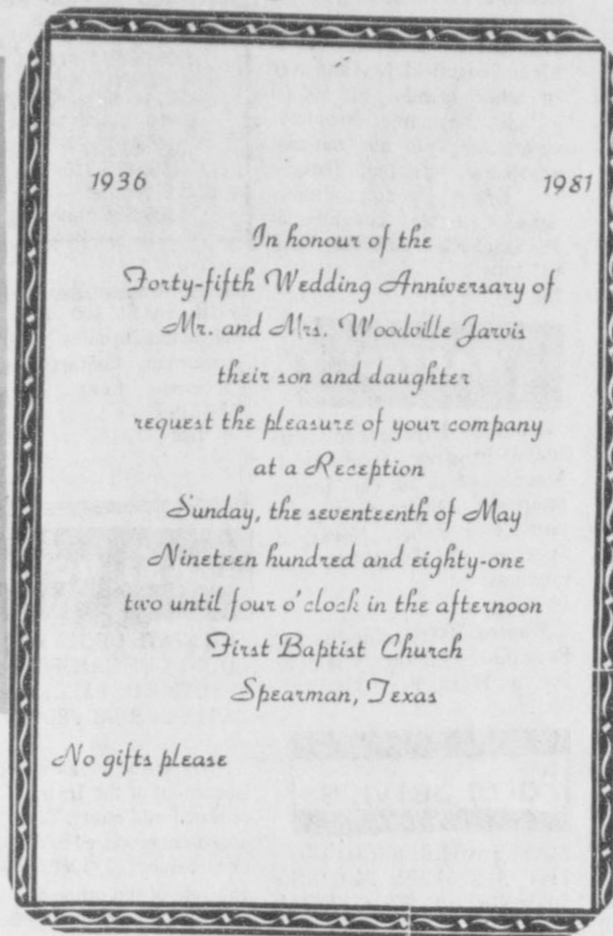 1936 1981
In honour of the
Forty-fifth Wedding Anniversary of
Mr. and Mrs. Woodville Jarvis
their son and daughter
request the pleasure of your company
at a Reception
Sunday, the seventeenth of May
Nineteen hundred and eighty-one
two until four o'clock in the afternoon
First Baptist Church
Spearman, Texas
No gifts please